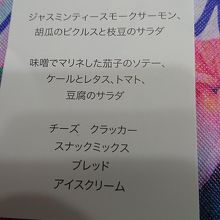 ジャスミンティースモークサーモン、
胡瓜のピクルスと枝豆のサラダ
味噌でマリネした茄子のソテー、
ケールとレタス、トマト、
豆腐のサラダ
チーズ　クラッカー
スナックミックス
ブレッド
アイスクリーム